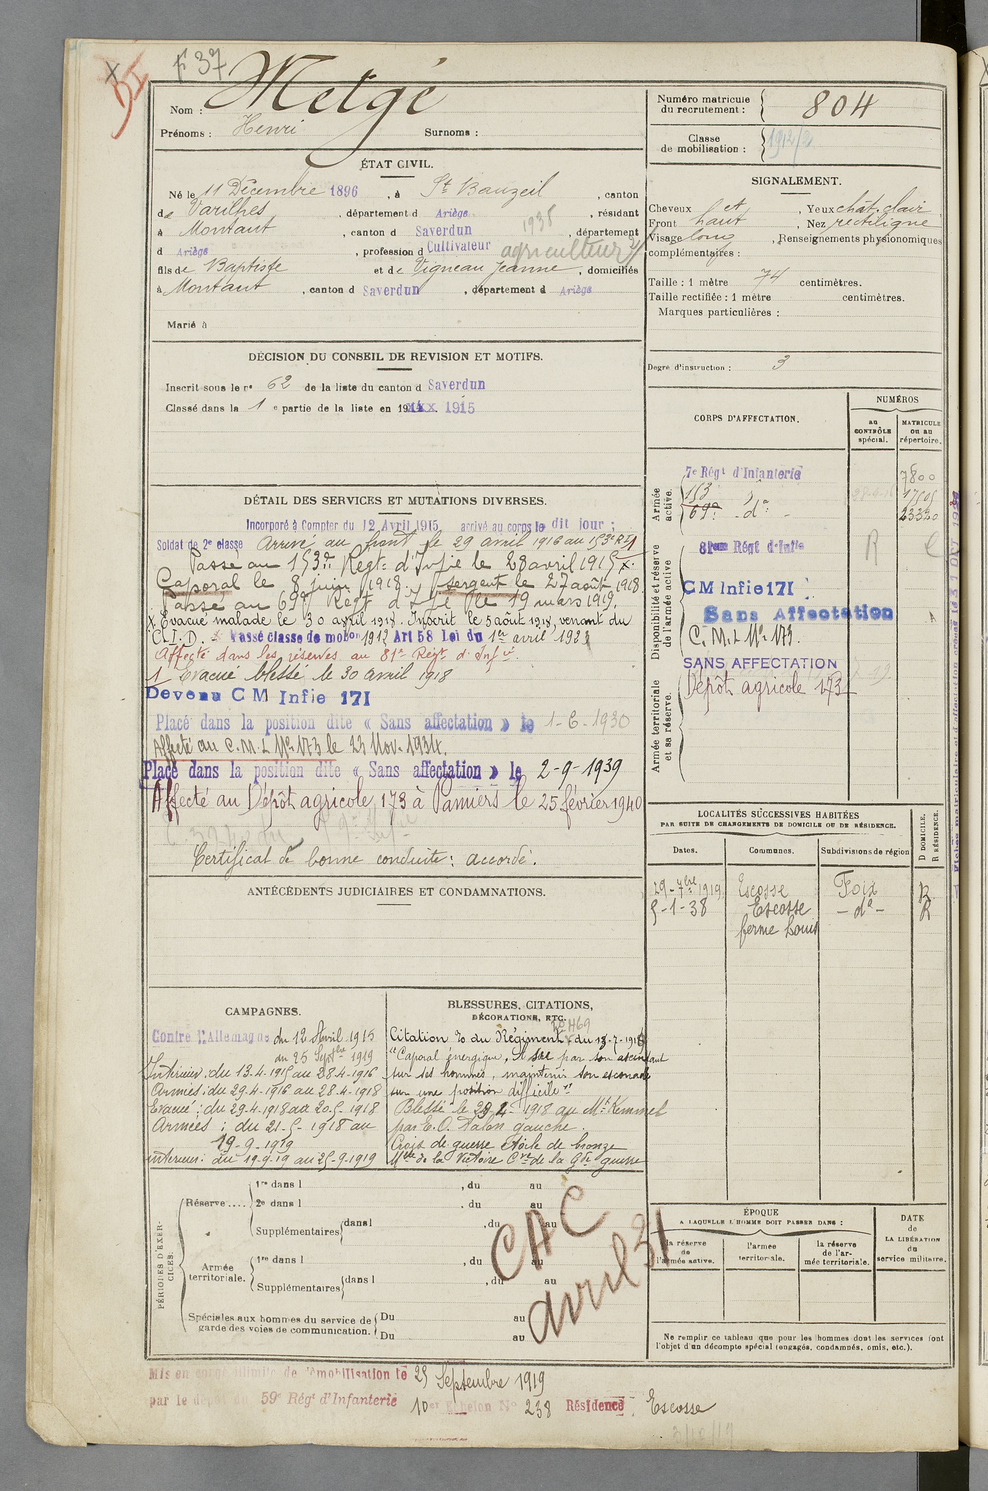 F 37
Nom : Metgé
Prénoms : Henri Surnoms :
Numéro matricule du recrutement : 804
Classe de mobilisation : 1912/2
ÉTAT CIVIL.
Né le 11 Décembre 1896, à St Bauzeil, canton
de Varilhes, département d Ariège, résidant
à Montaut, canton d Saverdun 1938, département
d Ariège, profession d Cultivateur agriculteur
fils de Baptiste et de Vigneau Jeanne, domiciliés
à Montaut, canton d Saverdun, département d Ariège
Marié à
SIGNALEMENT.
Cheveux ch et, Yeux chât. clair
Front haut, Nez rectiligne
Visage long, Renseignements physionomiques
complémentaires :
Taille : 1 mètre 74 centimètres.
Taille rectifiée : 1 mètre centimètres.
Marques particulières :
Degré d'instruction : 3
DÉCISION DU CONSEIL DE REVISION ET MOTIFS.
Inscrit sous le n° 62 de la liste du canton d Saverdun
Classé dans la 1e partie de la liste en 191 1915
DÉTAIL DES SERVICES ET MUTATIONS DIVERSES.
Incorporé à Compter du 12 Avril 1915, arrivé au corps le dit jour ;
Soldat de 2e classe Arrivé au front le 29 avril 1916 au 153e RI
Passé au 153e Régt d'Infie le 28 avril 1915 x.
Caporal le 8 juin 1918. Sergent le 27 août 1918
Passé au 69e Régt d'Infie le 19 mars 1919.
x Evacué malade le 30 avril 1918. Inscrit le 5 août 1918, venant du
C.I.D. Passé classe de mobon 1912 Art 58 Loi du 1er avril 1923
Affecté dans les réserves au 81e Régt d'Infie.
1 Evacué blessé le 30 avril 1918
Devenu C M Infie 171
Placé dans la position dite « Sans affectation » le 1-6-1930
Affecté au C.M.I. No 173 le 23 Nov. 1934.
Placé dans la position dite « Sans affectation » le 2-9-1939
Affecté au Dépôt agricole 173 à Pamiers le 25 février 1940
Certificat de bonne conduite : accordé.
CORPS D'AFFECTATION.
NUMÉROS
au CONTRÔLE spécial.
MATRICULE ou au répertoire.
Armée active.
7e Régt d'Infanterie 7800
153
69e d°
23320
Disponibilité et réserve de l'armée active
81eme Régt d'Infie R
CM Infie 171
Sans Affectation
C.M.I. No 173.
SANS AFFECTATION
Armée territoriale et sa réserve.
Dépôt agricole 173
LOCALITÉS SUCCESSIVES HABITÉES
PAR SUITE DE CHANGEMENTS DE DOMICILE OU DE RÉSIDENCE.
Dates. Communes. Subdivisions de région D DOMICILE. R RÉSIDENCE.
29-7bre 1919 Escosse Foix R
5-1-38 Escosse – d° – R
ferme Louis
ANTÉCÉDENTS JUDICIAIRES ET CONDAMNATIONS.
CAMPAGNES.
Contre l'Allemagne du 12 Avril 1915
au 25 Septbre 1919
Intérieur : du 13-4-1915 au 28-4-1916
Armées : du 29-4-1916 au 28-4-1918
Evacué : du 29-4-1918 au 20-5-1918
Armées : du 21-5-1918 au
19-9-1919
intérieur : du 19-9-19 au 25-9-1919
BLESSURES, CITATIONS,
DÉCORATIONS, ETC.
Citation à l'O du Régiment du 13-7-1918
"Caporal énergique, A su par son ascendant
sur ses hommes, maintenir son escouade
sur une position difficile"
Blessé le 29 1918 au Mt Kemmel
par E.O. talon gauche.
Croix de guerre étoile de bronze
Mlle de la Victoire Cve de la Gde guerre
PÉRIODES D'EXERCICES.
Réserve .... 1re dans l , du au
2e dans l , du au
Supplémentaires dans l , du au
Armée territoriale. 1re dans l , du au
Supplémentaires dans l , du au
Spéciales aux hommes du service de garde des voies de communication. Du au
Du au
CAC
avril 31
ÉPOQUE
A LAQUELLE L'HOMME DOIT PASSER DANS :
la réserve de l'armée active.
l'armée territoriale.
la réserve de l'armée territoriale.
DATE de LA LIBÉRATION du service militaire.
Ne remplir ce tableau que pour les hommes dont les services font
l'objet d'un décompte spécial (engagés, condamnés, omis, etc.).
Mis en congé illimité de démobilisation le 25 Septembre 1919
par le dépôt du 59e Régt d'Infanterie 10e Echelon No 238 Résidence Escosse